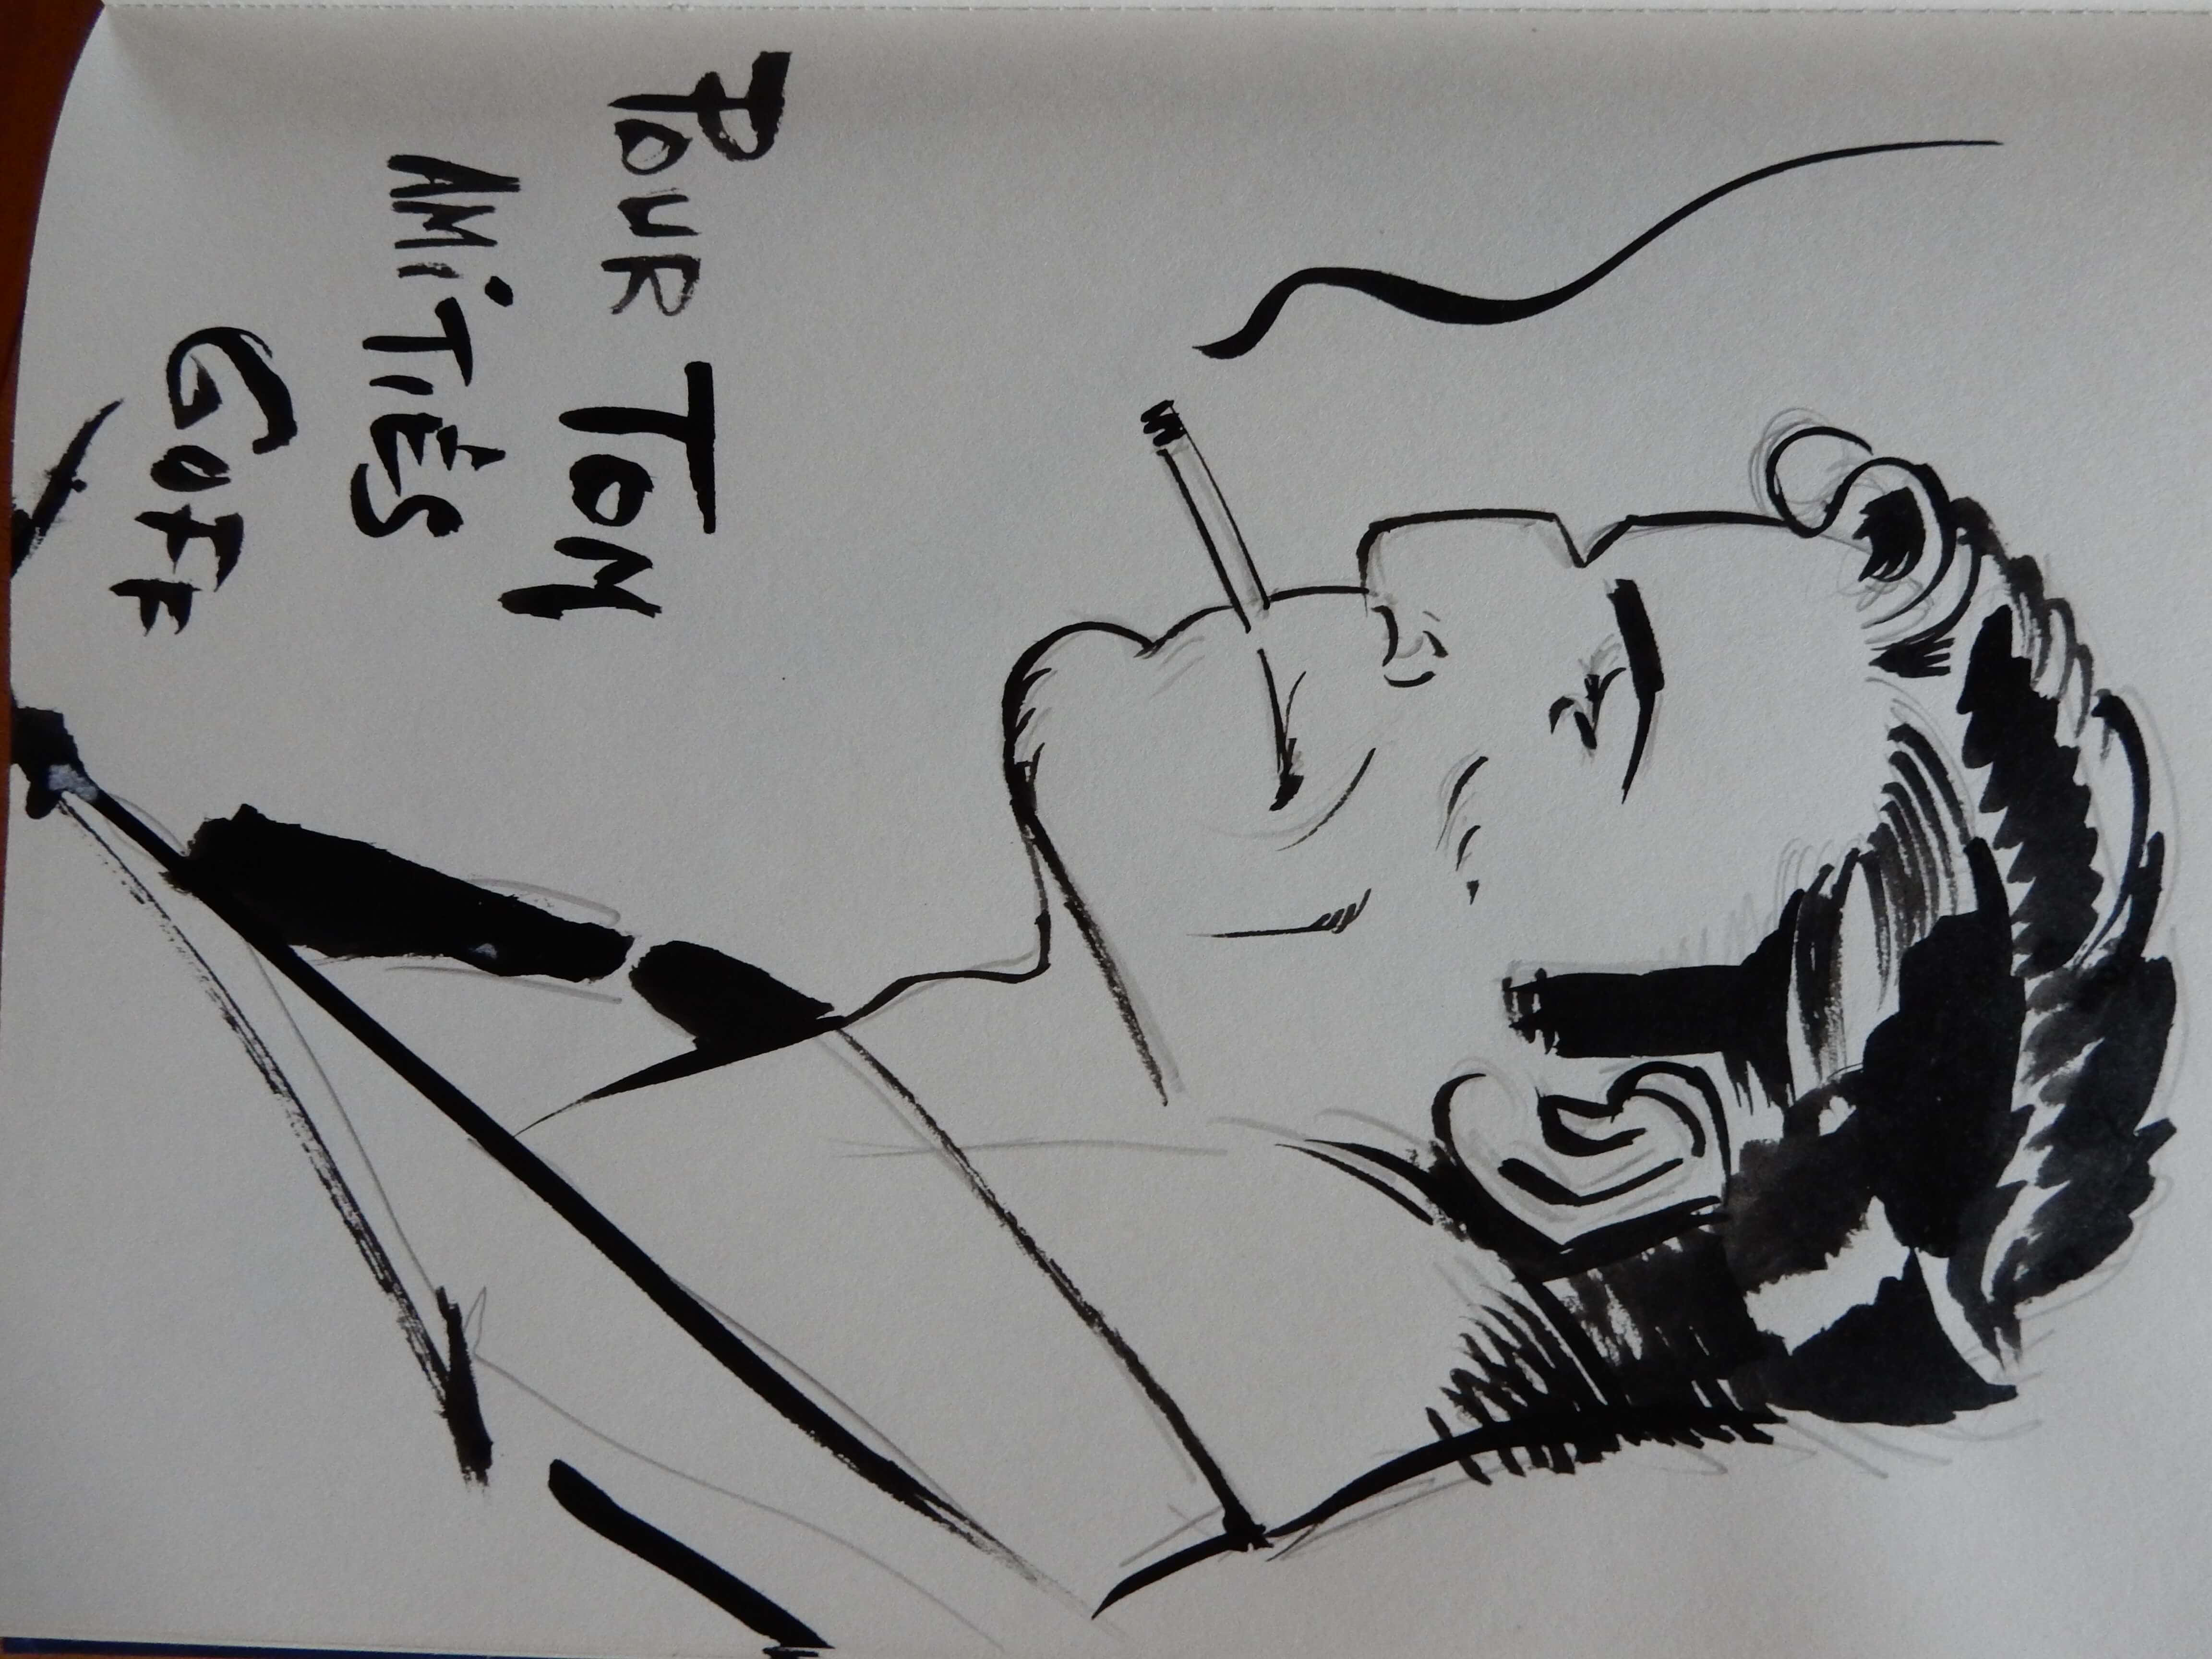 POUR TOM
AMiTiÉS
GOFF